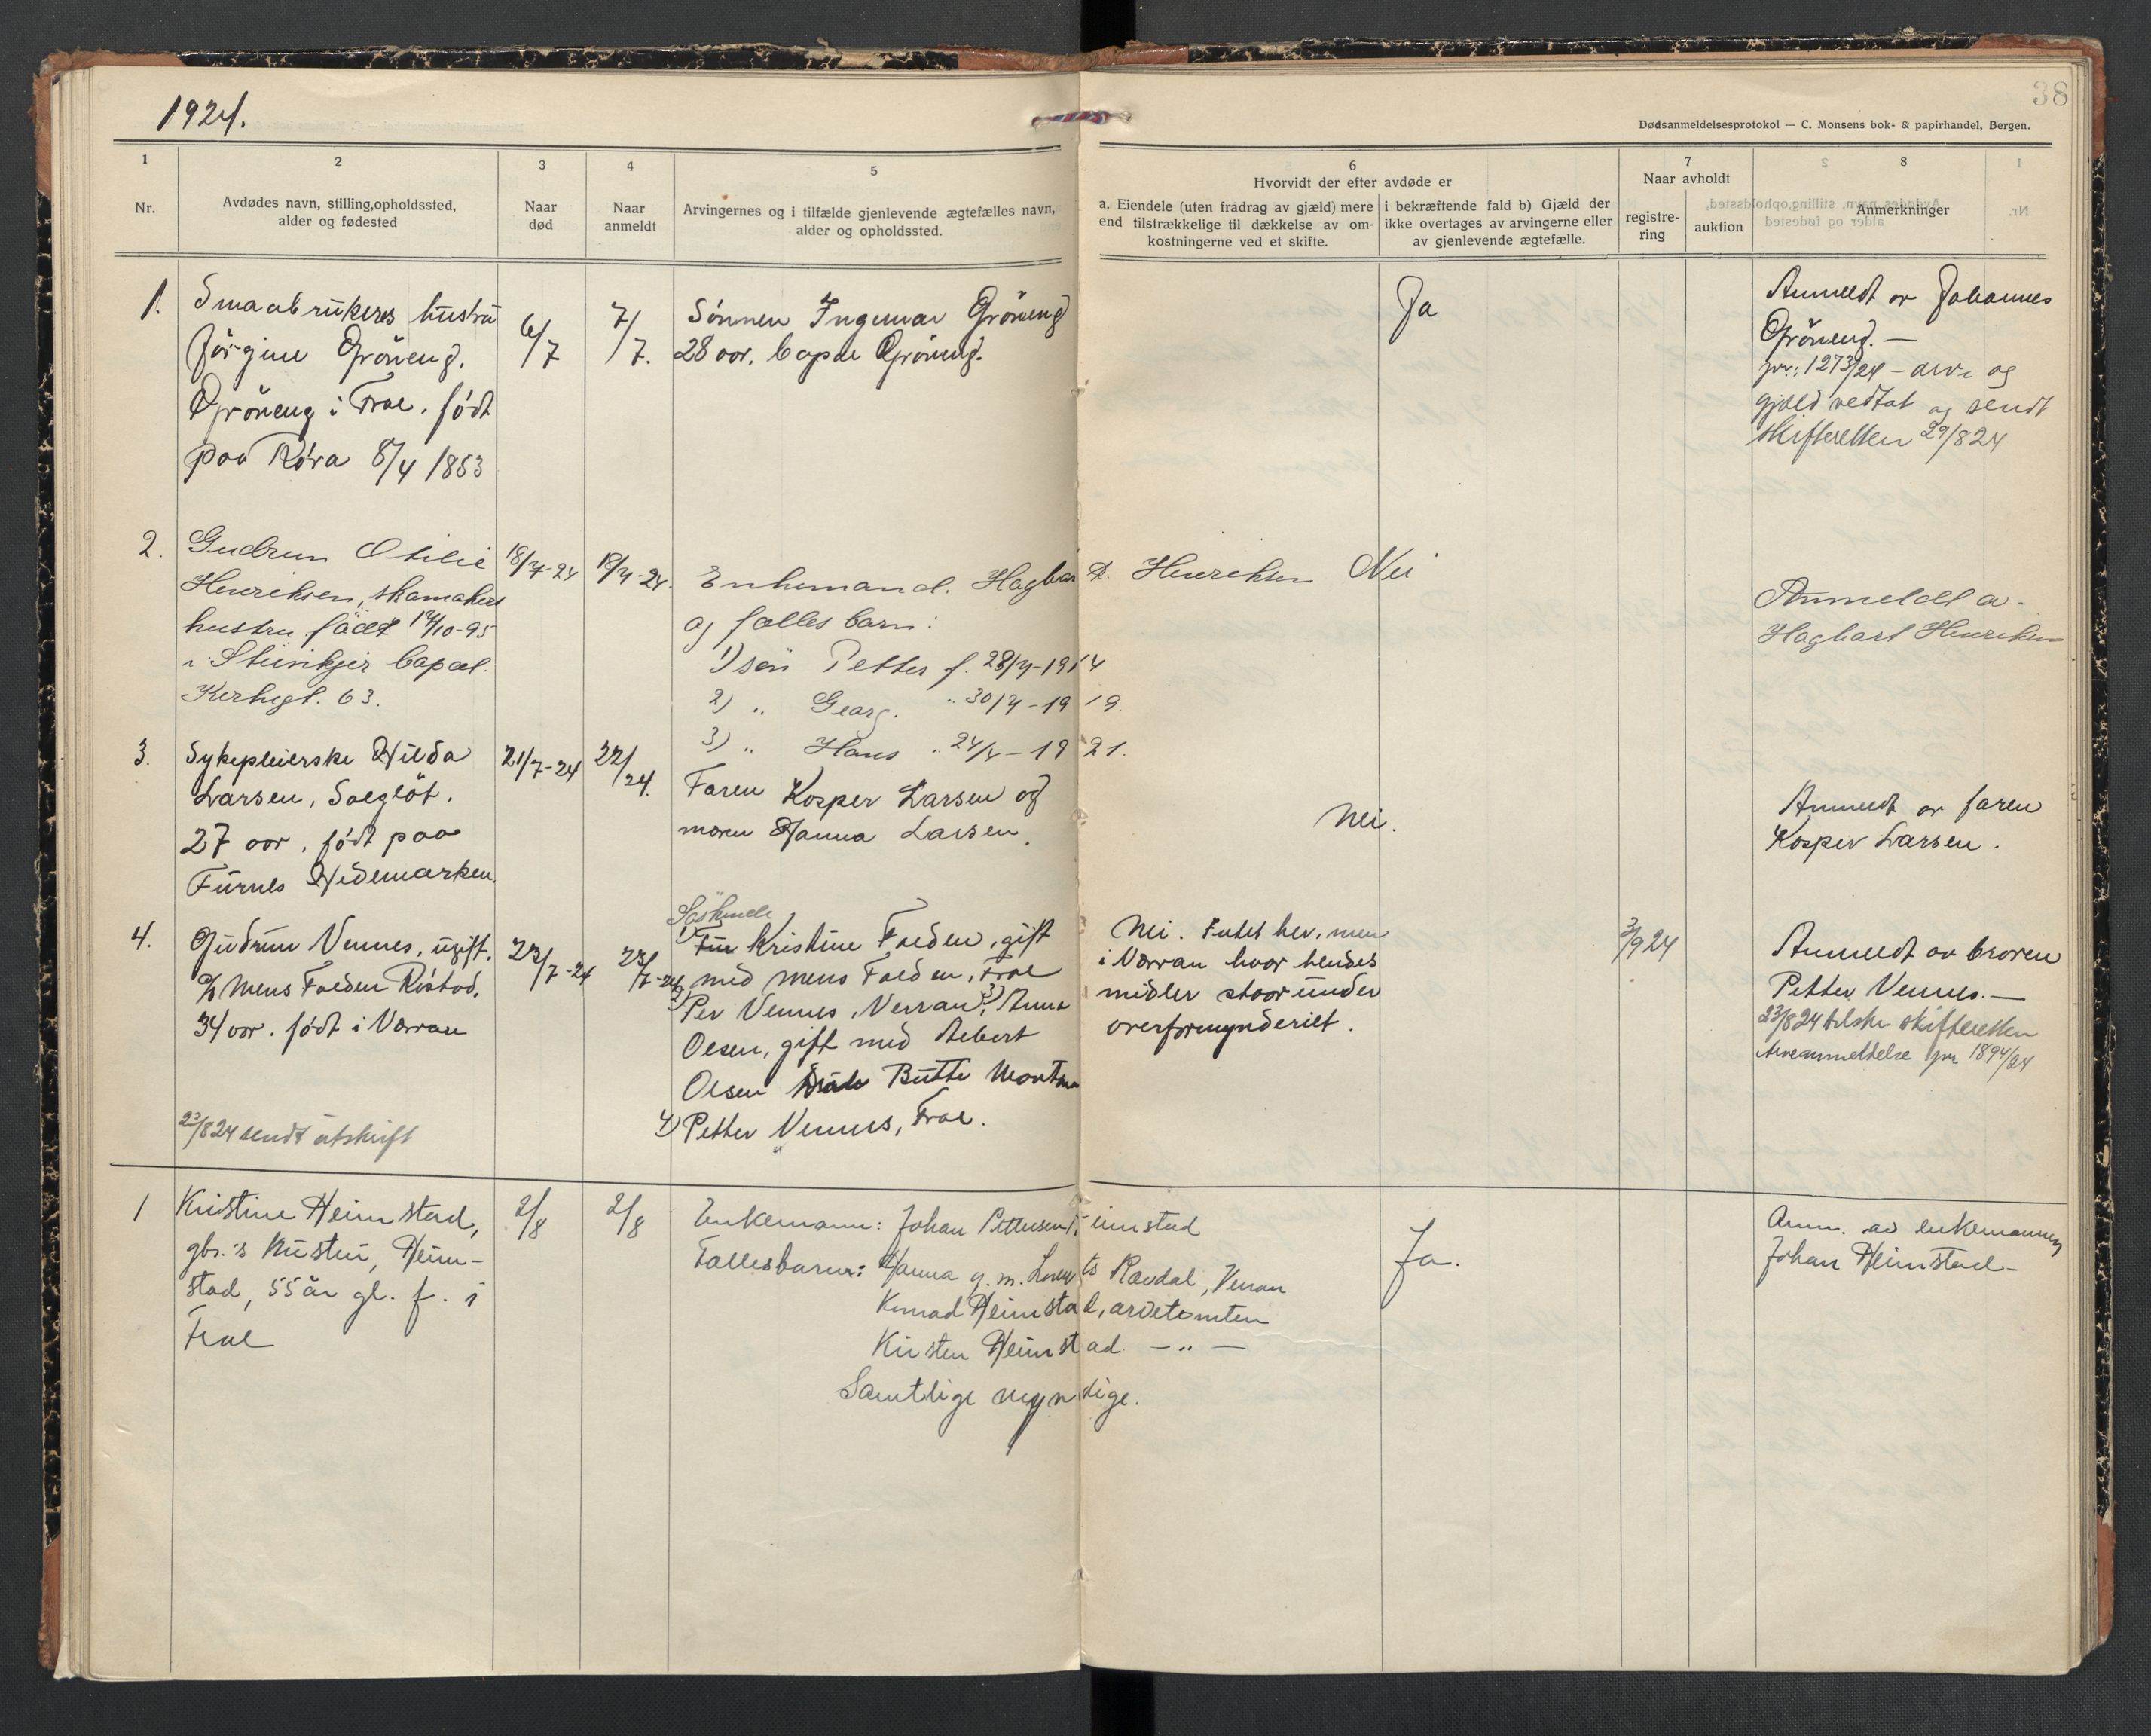 1924.
38
Dødsanmeldelsesprotokol — C. Monsens bok- & papirhandel, Bergen.
1
Nr.
2
Avdødes navn, stilling, opholdssted,
alder og fødested
3
Naar
død
4
Naar
anmeldt
5
Arvingernes og i tilfælde gjenlevende ægtefælles navn,
alder og opholdssted.
6
Hvorvidt der efter avdøde er
a. Eiendele (uten fradrag av gjæld) mere
end tilstrækkelige til dækkelse av om-
kostningerne ved et skifte.
i bekræftende fald b) Gjæld der
ikke overtages av arvingerne eller
av gjenlevende ægtefælle.
7
Naar avholdt
registre-
ring
auktion
8
Anmerkninger
1.
Smaabrukers hustru
Jörgine Gröneng,
Gröneng i Frol. født
paa Røra 8/4 1853
6/7
7/7.
Sønnen Ingemar Gröneng
28 aar,
Gröneng.
Ja
Anmeldt av Johannes
Gröneng. —
jvr: 1273/24 - arv og
gjæld vedtat og sendt
skifteretten 29/8 24
2.
Gudrun Otilie
Henriksen, skomakers
hustru född 14/10-95
i Steinkjer
Kirkegt. 63.
18/7-24
18/7-24.
Enkemand. Hagbar D. Henriksen
og fælles barn:
1) søn Petter f. 28/4-1914
2) " Georg. " 30/4-1919.
3) " Hans " 24/4-1921.
Nei
Anmeldt a.
Hagbart Henriksen
3.
Sykepleierske Hilda
Larsen, Solglöt.
27 aar, født paa
Furnes Hedemarken.
21/7-24
22/24.
Faren Kasper Larsen og
moren Hanna Larsen.
Nei.
Anmeldt av faren
Kasper Larsen.
4.
Gudrun Vennes, ugift.
% Mens Folden Röstad.
34 aar. født i Værran
23/8 24 sendt utskrift
23/7-24
23/7-24
Søskende
1) Kristine Folden, gift
med Mens Folden, Frol
2) Per Vennes, Verran, 3) Anna
Olsen, gift med Albert
Olsen
4) Petter Vennes, Frol.
Nei. Intet her, men
i Værran hvor hendes
midler staar under
overformynderiet.
3/9 24
Anmeldt av broren
Petter Vennes. —
23/8 24 tilskr skifteretten
Arveanmeldelse jvr 1894/24
1
Kristine Heimstad,
gbr.'s hustru, Heim-
stad, 55 år gl. f. i
Frol
2/8
2/8
Enkemann: Johan Pettersen Heimstad
Fællesbarn: Hanna g. m. Lorents Ravdal, Verran
Konrad Heimstad, arvetomten
Kirsten Heimstad — " —
Samtlige myndige.
Ja.
Anm. av enkemannen
Johan Heimstad-